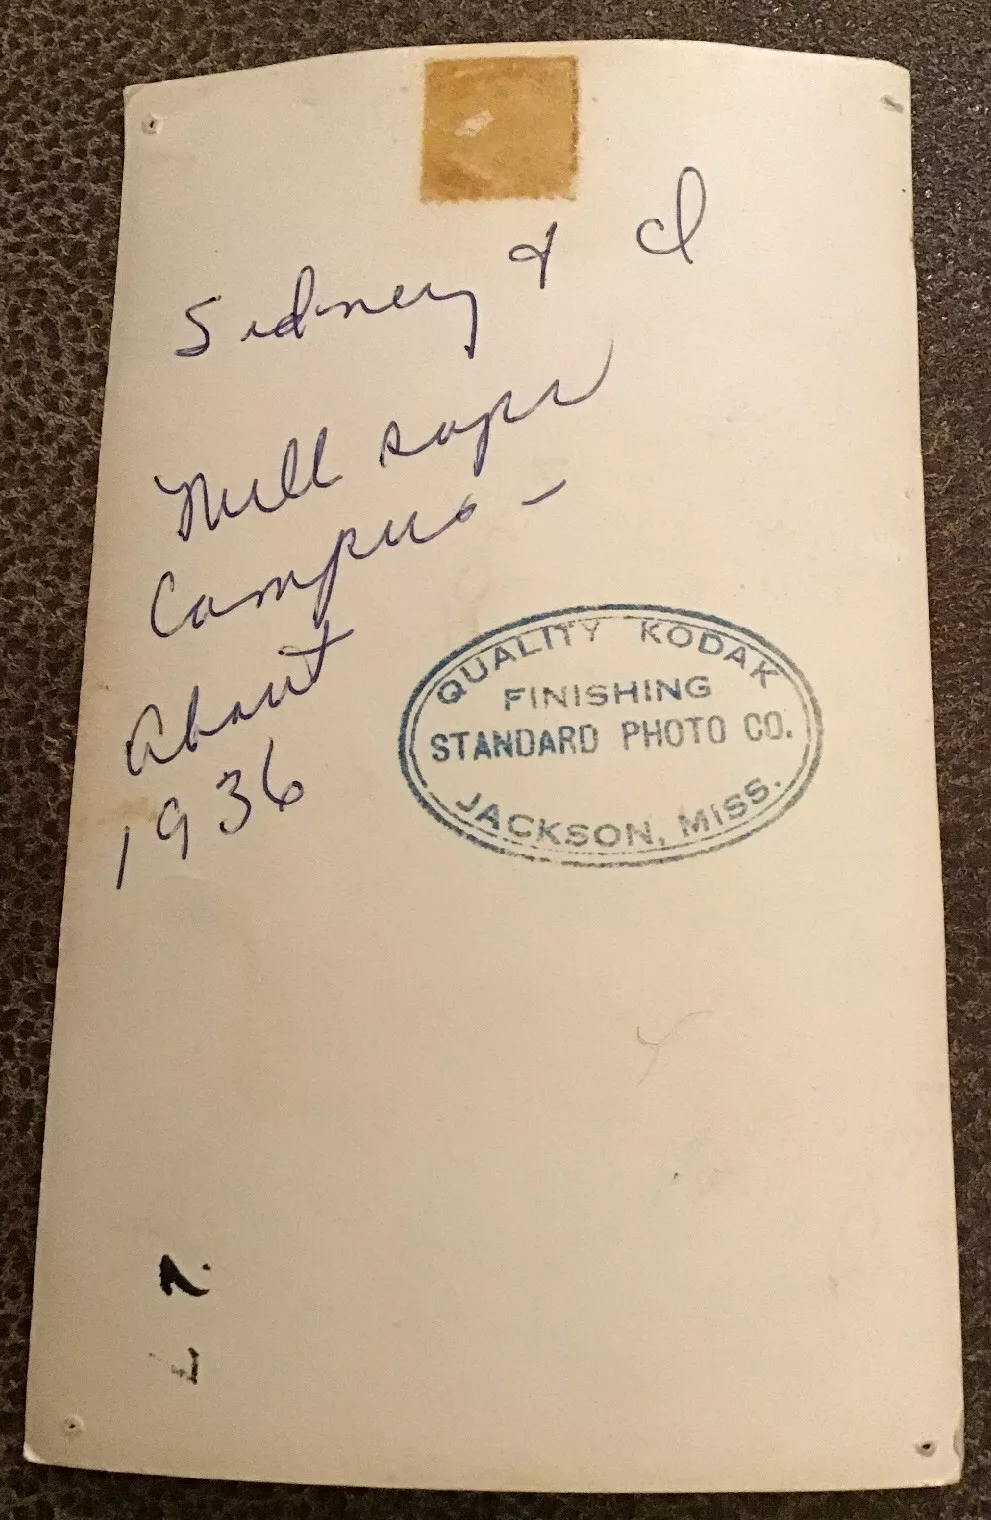 Sidney & I
Mill saps
Campus -
About
1936
QUALITY KODAK
FINISHING
STANDARD PHOTO CO.
JACKSON, MISS.